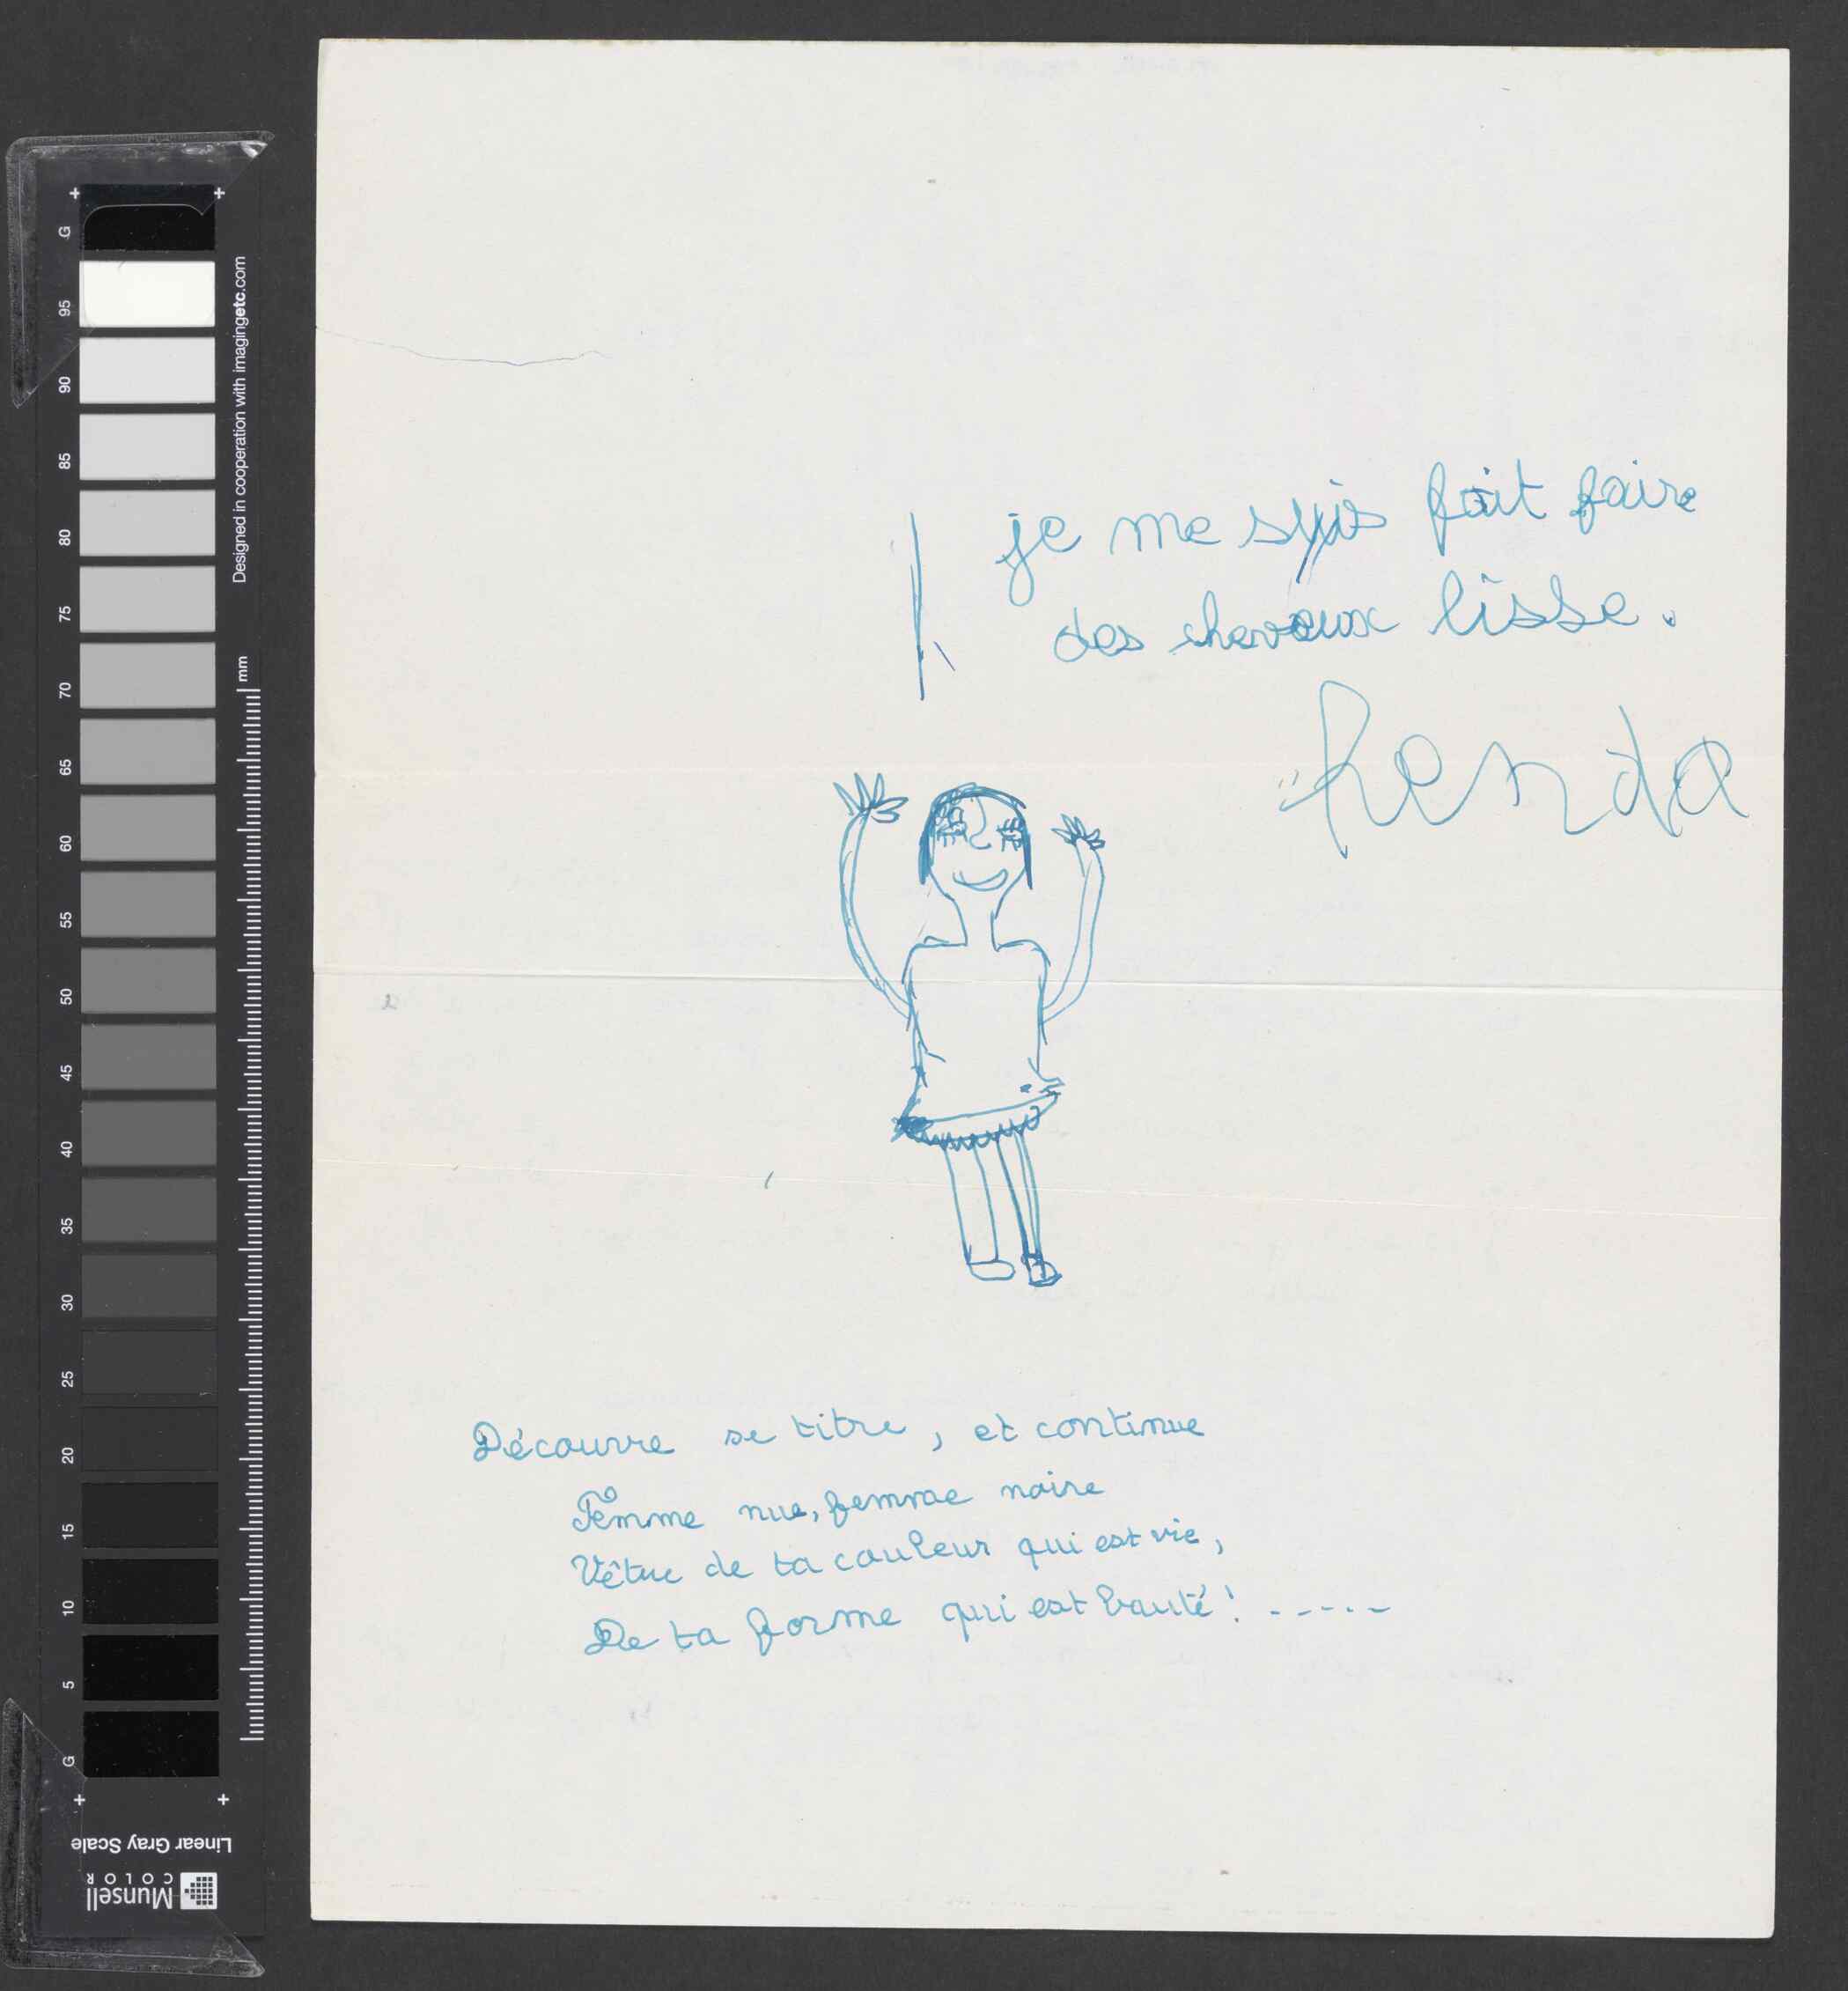 je me suis fait faire
des cheveux lisse.
henda
Découvre se titre, et continue
Femme nue, femme noire
Vêtue de ta couleur qui est vie,
De ta forme qui est bauté! -----
G
95
90
85
80
75
70
65
60
55
50
45
40
35
30
25
20
15
10
5
G
Designed in cooperation with imagingetc.com
mm
Linear Gray Scale
Munsell
COLOR